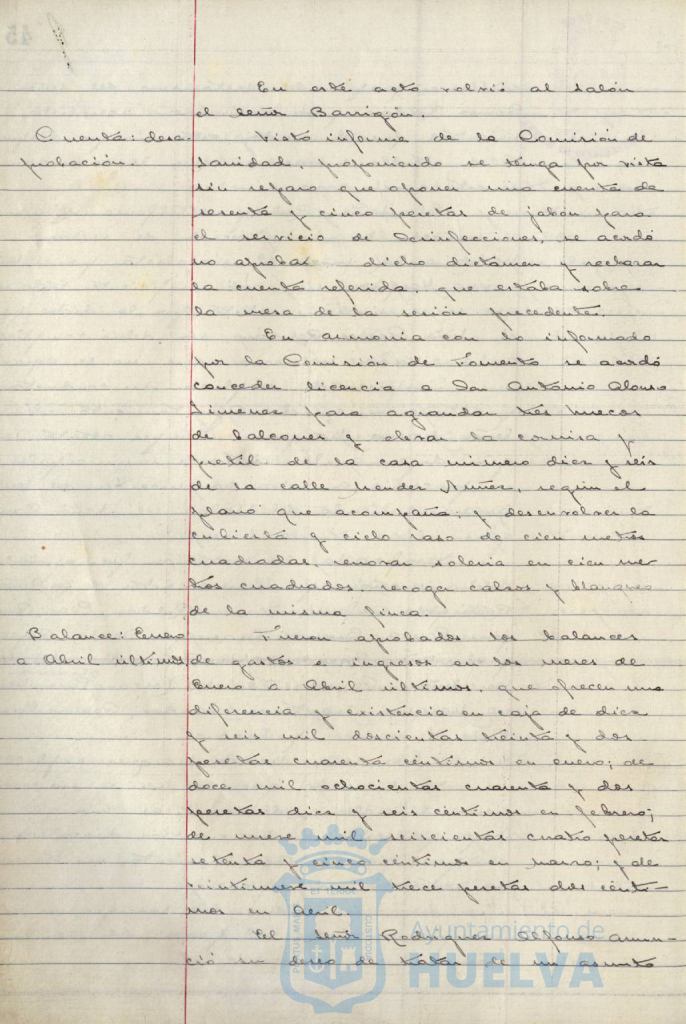 En este acto volvió al salón
el señor Barrigón.
Cuenta: desa-
probación.
Visto informe de la Comisión de
Sanidad, proponiendo se tenga por vista
sin reparo que oponer una cuenta de
sesenta y cinco pesetas de jabón para
el servicio de Desinfecciones, se acordó
no aprobar dicho dictamen y rechazar
la cuenta referida, que estaba sobre
la mesa de la sesión precedente.
En armonía con lo informado
por la Comisión de Fomento se acordó
conceder licencia a Don Antonio Alonso
Jimenez para agrandar tres huecos
de balcones y elevar la cornisa y
pretil de la casa número diez y seis
de la calle Mendez Nuñez, según el
plano que acompaña; y desenvolver la
cubierta y cielo raso de cien metros
cuadrados, renovar soleria en cien me-
tros cuadrados, recoger calsos y blanqueo
de la misma finca.
Balance: Enero
a Abril últimos.
Fueron aprobados los balances
de gastos e ingresos en los meses de
Enero a Abril últimos, que ofrecen una
diferencia y existencia en caja de diez
y seis mil doscientas treinta y dos
pesetas cuarenta céntimos en enero; de
doce mil ochocientas cuarenta y dos
pesetas diez y seis céntimos en febrero;
de nueve mil seiscientas cuatro pesetas
setenta y cinco céntimos en marzo; y de
veintinueve mil trece pesetas dos cénti-
mos en Abril.
El señor Rodriguez Alfonso anun-
ció su deseo de tratar de un asunto
Ayuntamiento de
HUELVA